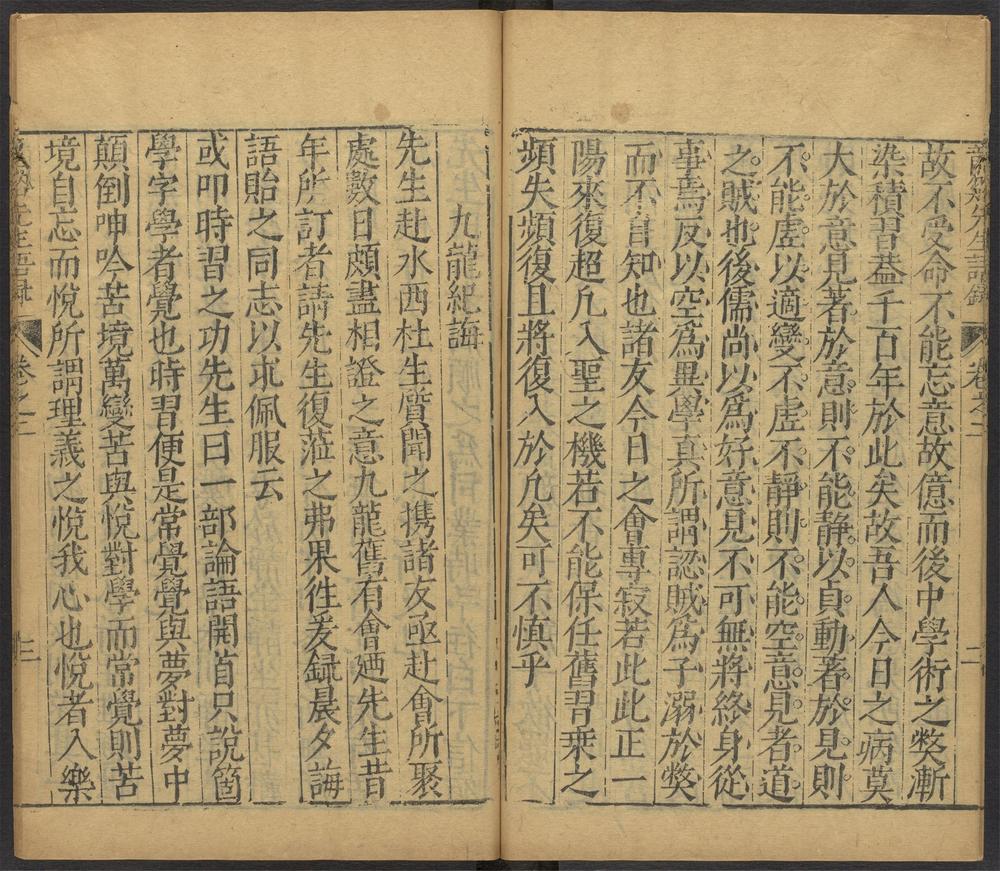 龍谿先生語錄 卷之二 二
故不受命不能忘意故億而後中學術之獘漸
染積習葢千百年於此矣故吾人今日之病莫
大於意見著於意則不能靜以貞動著於見則
不能虛以適變不虛不靜則不能空意見者道
之賊也後儒尚以爲好意見不可無將終身從
事焉反以空爲異學真所謂認賊爲子溺於獘
而不自知也諸友今日之會專寂若此此正一
陽來復超凡入聖之機若不能保任舊習乗之
頻失頻復且將復入於凡矣可不慎乎
九龍紀誨
先生赴水西杜生質聞之攜諸友亟赴會所聚
處數日頗盡相證之意九龍舊有會廼先生昔
年所訂者請先生復蒞之弗果徃爰録晨夕誨
語貽之同志以永佩服云
或叩時習之功先生曰一部論語開首只說箇
學字學者覺也時習便是常覺覺與夢對夢中
顛倒呻吟苦境萬變苦與悅對學而常覺則苦
境自忘而悅所謂理義之悅我心也悅者入樂
先生語錄 卷之二 三